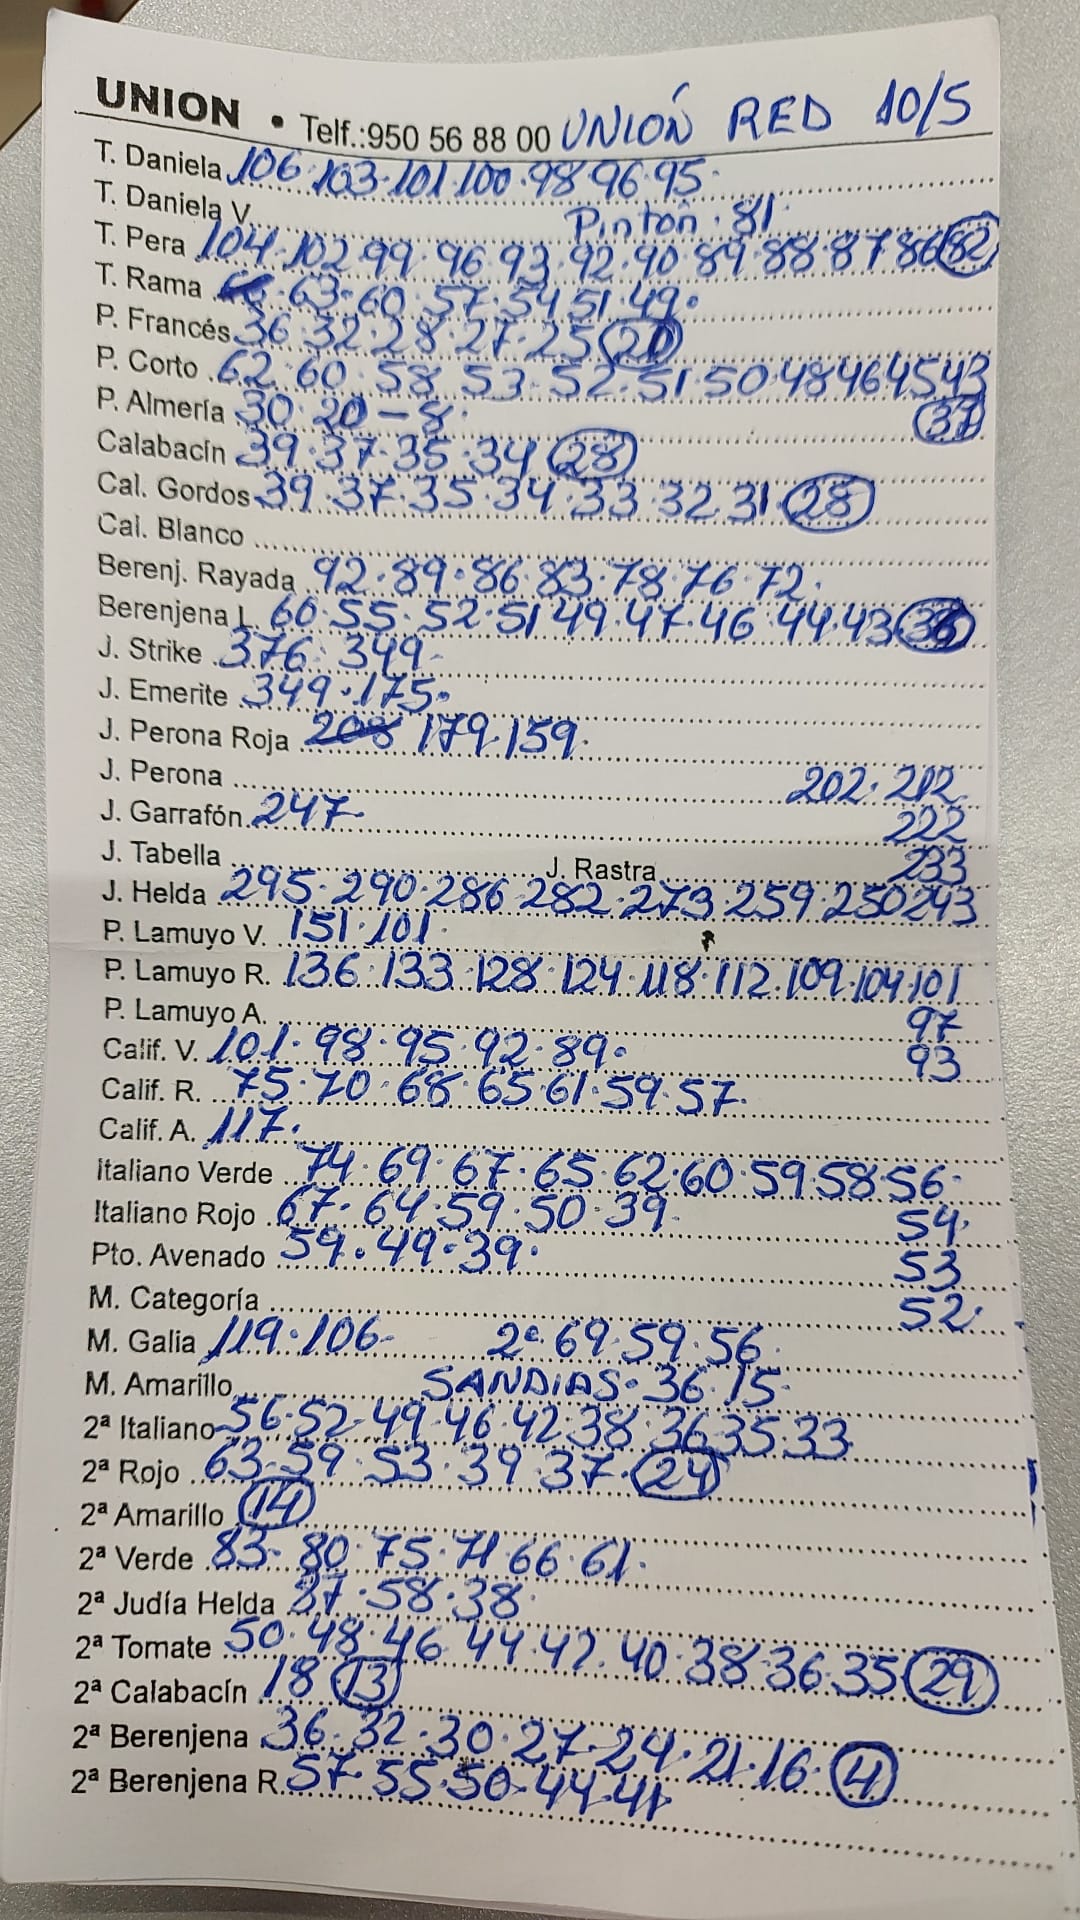 UNION • Telf.:950 56 88 00 UNIÓN RED 10/5
T. Daniela 106·103·101·100·98·96·95·
T. Daniela V. Pintón·81·
T. Pera 104·102·99·96·93·92·90·89·88·87·86 82
T. Rama 63·60·57·54·51·49·
P. Francés 36·32·28·27·25
P. Corto 62·60·58·53·52·51·50·48 46 45 43
37
P. Almería 30·20-8·
Calabacín 39·37·35·34 28
Cal. Gordos 39·37·35·34·33·32·31 28
Cal. Blanco
Berenj. Rayada 92·89·86·83·78·76·72·
Berenjena L. 60·55·52·51 49·47·46·44·43
J. Strike 376·349-
J. Emerite 349·175·
J. Perona Roja 208 179·159·
J. Perona 202·212
J. Garrafón 247 222
J. Tabella J. Rastra 233
J. Helda 295·290·286·282·273·259·250 243
P. Lamuyo V. 151·101·
P. Lamuyo R. 136·133·128·124·118·112·109·104·101
P. Lamuyo A. 97
Calif. V. 101·98·95·92·89· 93
Calif. R. 75·70·68·65·61·59·57·
Calif. A. 117·
Italiano Verde 74·69·67·65·62·60·59·58·56·
Italiano Rojo 67·64·59·50·39· 54·
Pto. Avenado 59·49·39· 53
M. Categoría 52·
M. Galia 119·106- 2ª 69·59·56·
M. Amarillo SANDIAS·36·15·
2ª Italiano 56·52·49·46·42·38·36 35·33
2ª Rojo 63·59·53·39·37· 24
2ª Amarillo 14
2ª Verde 83·80·75·71 66·61·
2ª Judía Helda 58·38·
2ª Tomate 50·48·46·44·42·40·38·36·35 29
2ª Calabacín 18 13
2ª Berenjena 36·32·30·27·24·21·16· 4
2ª Berenjena R. 57·55·50·44·41